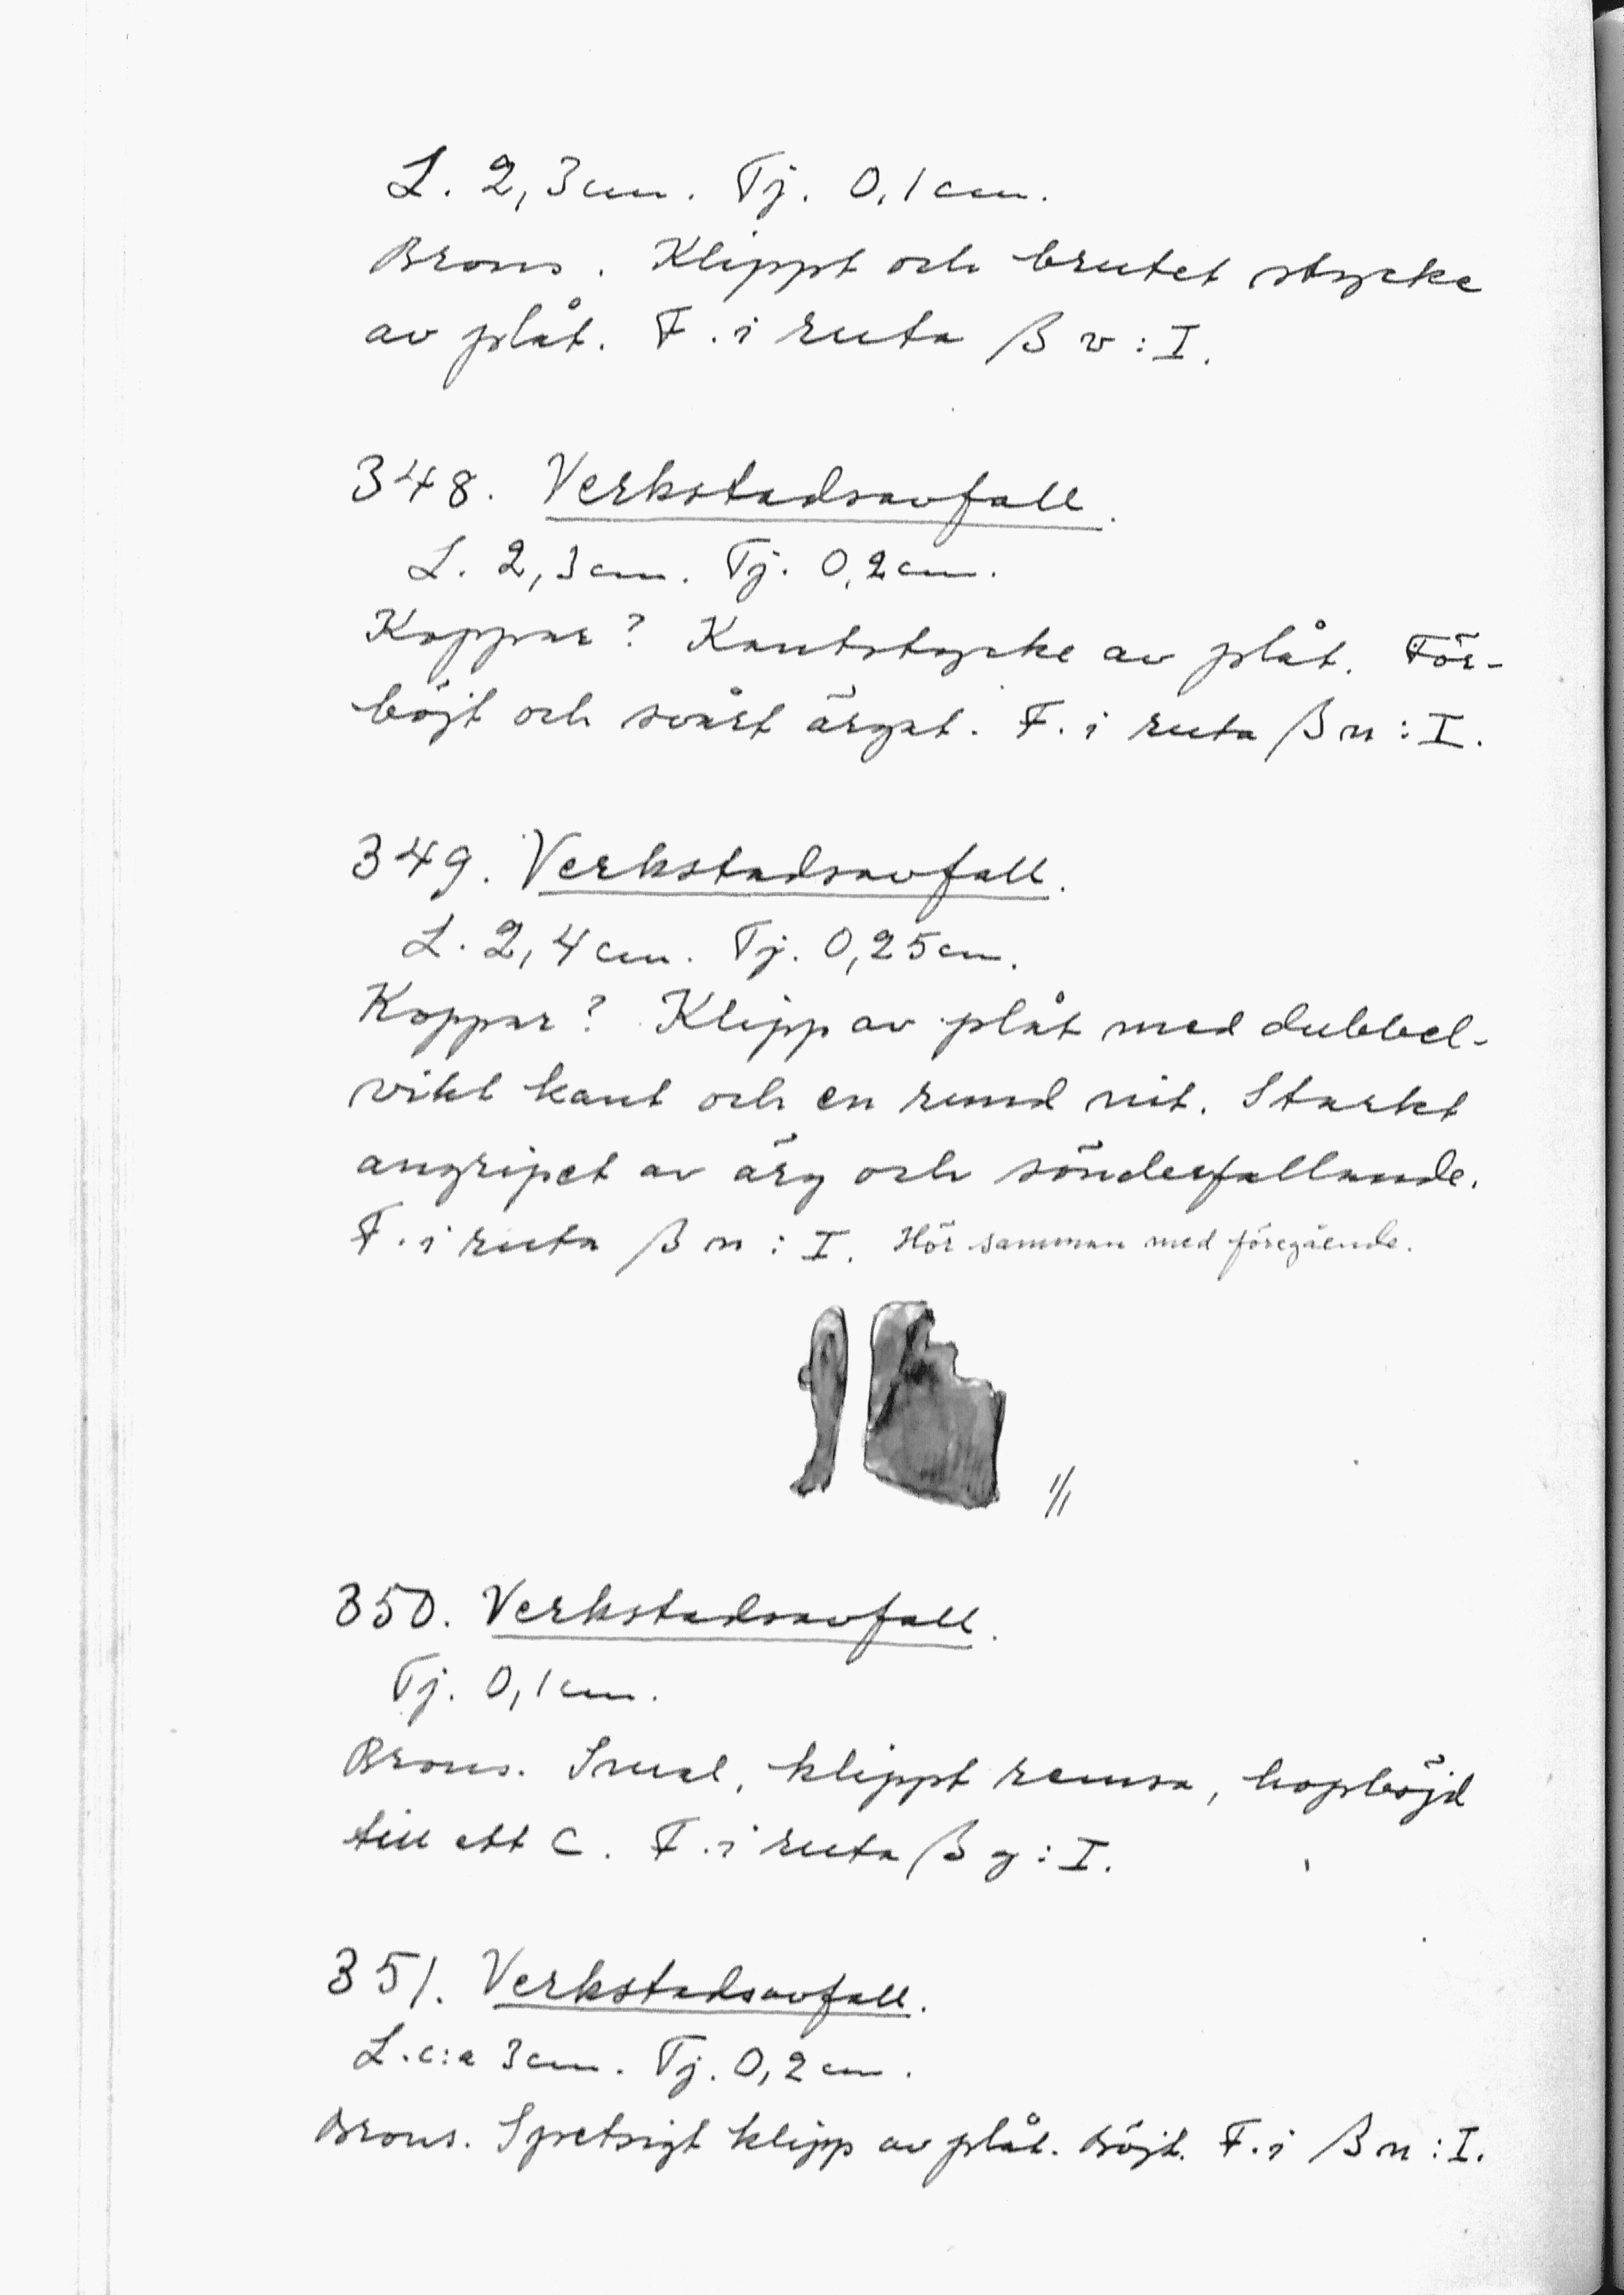 L. 2,3 cm. Tj. 0,1 cm.
Brons. Klippt och brutet stycke
av plåt. F. i ruta β v : I.
348. Verkstadsavfall.
L. 2,3 cm. Tj. 0,2 cm.
Koppar? Kantstycke av plåt. För-
böjt och svårt ärgat. F. i ruta β n : I.
349. Verkstadsavfall.
L. 2,4 cm. Tj. 0,25 cm.
Koppar? Klipp av plåt med dubbel-
vikt kant och en rund nit. Starkt
angripet av ärg och sönderfallande.
F. i ruta β n : I. Hör samman med föregående.
1/1
350. Verkstadsavfall.
Tj. 0,1 cm.
Brons. Smal, klippt remsa, hopböjd
till ett C. F. i ruta β y : I.
351. Verkstadsavfall.
L. c:a 3 cm. Tj. 0,2 cm.
Brons. Spetsigt klipp av plåt. Böjt. F. i β n : I.